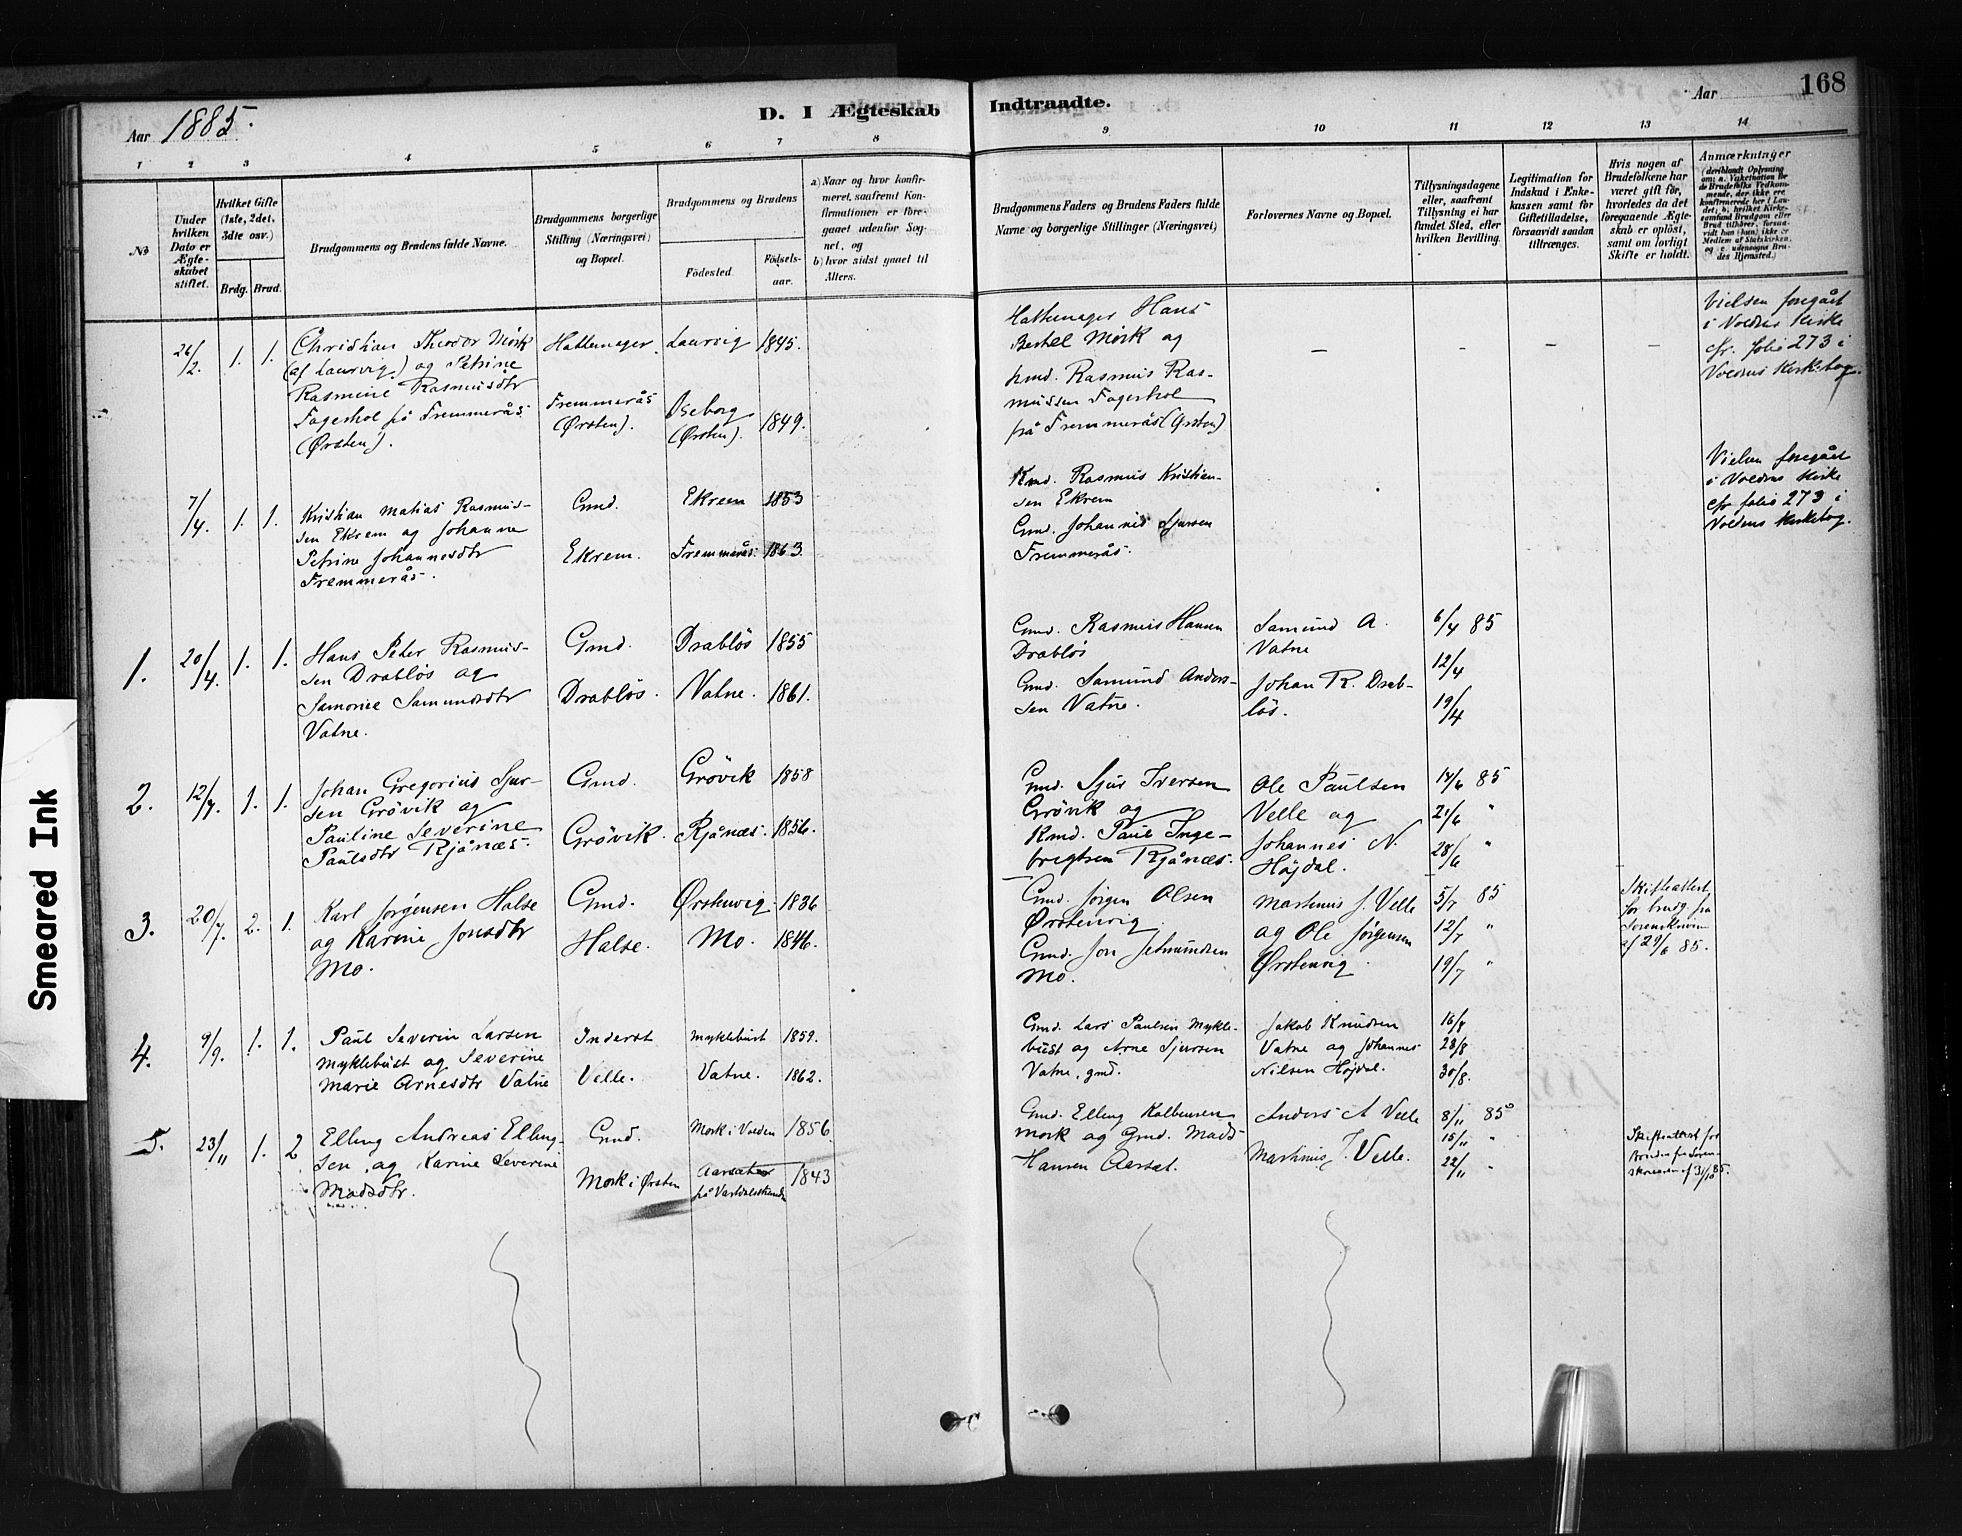 168
Aar 1885.
D. I Ægteskab Indtraadte.
Aar
1 2 3 4 5 6 7 8 9 10 11 12 13 14
No
Under hvilken Dato er Ægteskabet stiftet.
Hvilket Gifte (1ste, 2det, 3dte osv.)
Brdg. Brud.
Brudgommens og Brudens fulde Navne.
Brudgommens borgerlige Stilling (Næringsvei) og Bopæl.
Brudgommens og Brudens
Födested.
Födselsaar.
a) Naar og hvor konfirmeret, saafremt Konfirmationen er foregaaet udenfor Sognet, og
b) hvor sidst gaaet til Alters.
Brudgommens Faders og Brudens Faders fulde Navne og borgerlige Stillinger (Næringsvei)
Forlovernes Navne og Bopæl.
Tillysningsdagene eller, saafremt Tillysning ei har fundet Sted, efter hvilken Bevilling.
Legitimation for Indskud i Enkekassen samt for Giftetilladelse, forsaavidt saadan tiltrænges.
Hvis nogen af Brudefolkene har været gift før, hvorledes da det foregaaende Ægteskab er oplöst, samt om lovligt Skifte er holdt.
Anmærkninger
26/2. 1. 1.
Christian Theodor Mörk
(af Laurvig) og Petrine
Rasmine Rasmusdtr
Fagerhol på Fremmerås
(Ørsten).
Hattemager.
Fremmerås
(Ørsten).
Laurvig 1845.
Oseborg
(Ørsten). 1849.
Hattemager Hans
Bertel Mörk og
Rasmus Ras-
mussen Fagerhol
på Fremmerås (Ørsten)
Vielsen foregået
i Voldens Kirke
cfr. folio 273 i
Voldens Kirkebog.
7/4. 1. 1.
Kristian Matias Rasmus-
sen Ekrem og Johanne
Petrine Johannesdtr
Fremmerås.
Gmd.
Ekrem.
Ekrem 1853
Fremmerås 1863.
Kmd. Rasmus Kristian-
sen Ekrem
Gmd. Johannes Sjursen
Fremmerås.
Vielsen foregået
i Voldens Kirke
cfr folio 273 i
Voldens Kirkebog.
1. 20/4. 1. 1.
Hans Peter Rasmus-
sen Drabløs og
Samorine Samundsdtr
Vatne.
Gmd.
Drabløs.
Drabløs 1855
Vatne. 1861.
Gmd. Rasmus Hansen
Drabløs
Gmd. Samund Anders-
sen Vatne.
Samund A.
Vatne
Johan R. Drab-
løs.
6/4 85
12/4
19/4
2. 12/7. 1. 1.
Johan Gregorius Sjur-
sen Grövik og
Pauline Severine
Paulsdtr Rjånæs.
Gmd.
Grövik.
Grövik 1858
Rjånæs. 1856.
Gmd. Sjur Iversen
Grövik og
Kmd. Paul Inge-
brigtsen Rjånæs.
Ole Paulsen
Velle og
Johannes N.
Höjdal.
14/6 85
21/6 "
28/6 "
3. 20/7. 2. 1.
Karl Jørgensen Halse
og Karine Jonsdtr
Mo.
Gmd.
Halse.
Ørstenvig 1836
Mo. 1846.
Gmd. Jørgen Olsen
Ørstenvig
Gmd. Jon Jetmundsen
Mo.
Martinus J. Velle
og Ole Jørgensen
Ørstenvig.
5/7 85
12/7 "
19/7 "
Skifteattest
for brudg. fra
Sorenskriveren
af 29/6 85.
4. 9/9. 1. 1.
Paul Severin Larsen
Myklebust og Severine
Marie Arnesdtr Vatne
Inderst
Velle.
Myklebust 1859.
Vatne. 1862.
Gmd. Lars Paulsen Mykle-
bust og Arne Sjursen
Vatne, gmd.
Jakob Knudsen
Vatne og Johannes
Nilsen Höjdal.
16/8
23/8
30/8.
5. 23/11 1. 2
Elling Andreas Elling-
sen og Karine Severine
Madsdtr.
Gmd.
Mork i Ørsten
Mork i Volden 1856
Aarsæt
på Vartdalsstranden 1843
Gmd. Elling Kolbensen
Mork og Gmd. Mads
Hansen Aarsæt.
Anders A Velle
Martinus J. Velle.
8/11 85
15/11 "
22/11 "
Skifteattest for
Bruden fra Soren-
skriveren af 31/10 85.
Smeared Ink